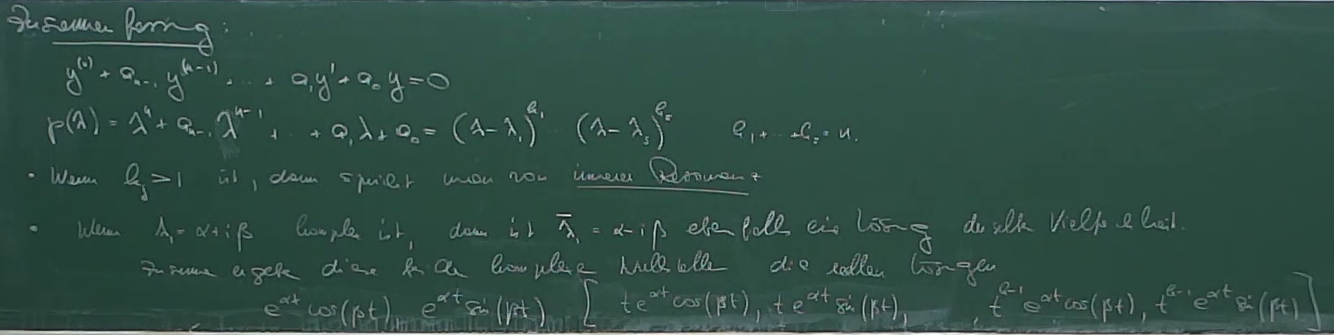 Zusammenfassung:
y^(n) + a_{n-1} y^(n-1) + ... + a_1 y' + a_0 y = 0
p(λ) = λ^n + a_{n-1} λ^{n-1} + ... + a_1 λ + a_0 = (λ-λ_1)^{k_1} ... (λ-λ_s)^{k_s} k_1 + ... + k_s = n.
• Wenn k_j > 1 ist, dann spricht man von innerer Resonanz
• Wenn λ_1 = α+iβ komplex ist, dann ist \overline{λ_1} = α-iβ ebenfalls eine Lösung derselben Vielfachheit.
Zusammen ergeben diese beiden komplexen Nullstellen die reellen Lösungen
e^{αt} cos(βt), e^{αt} sin(βt) [ t e^{αt} cos(βt), t e^{αt} sin(βt), ..., t^{k-1} e^{αt} cos(βt), t^{k-1} e^{αt} sin(βt) ]